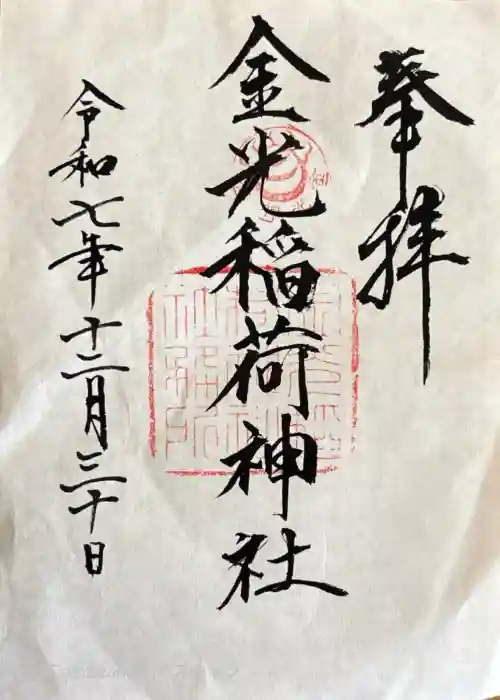 奉拝
金光稲荷神社
令和七年十二月三十日